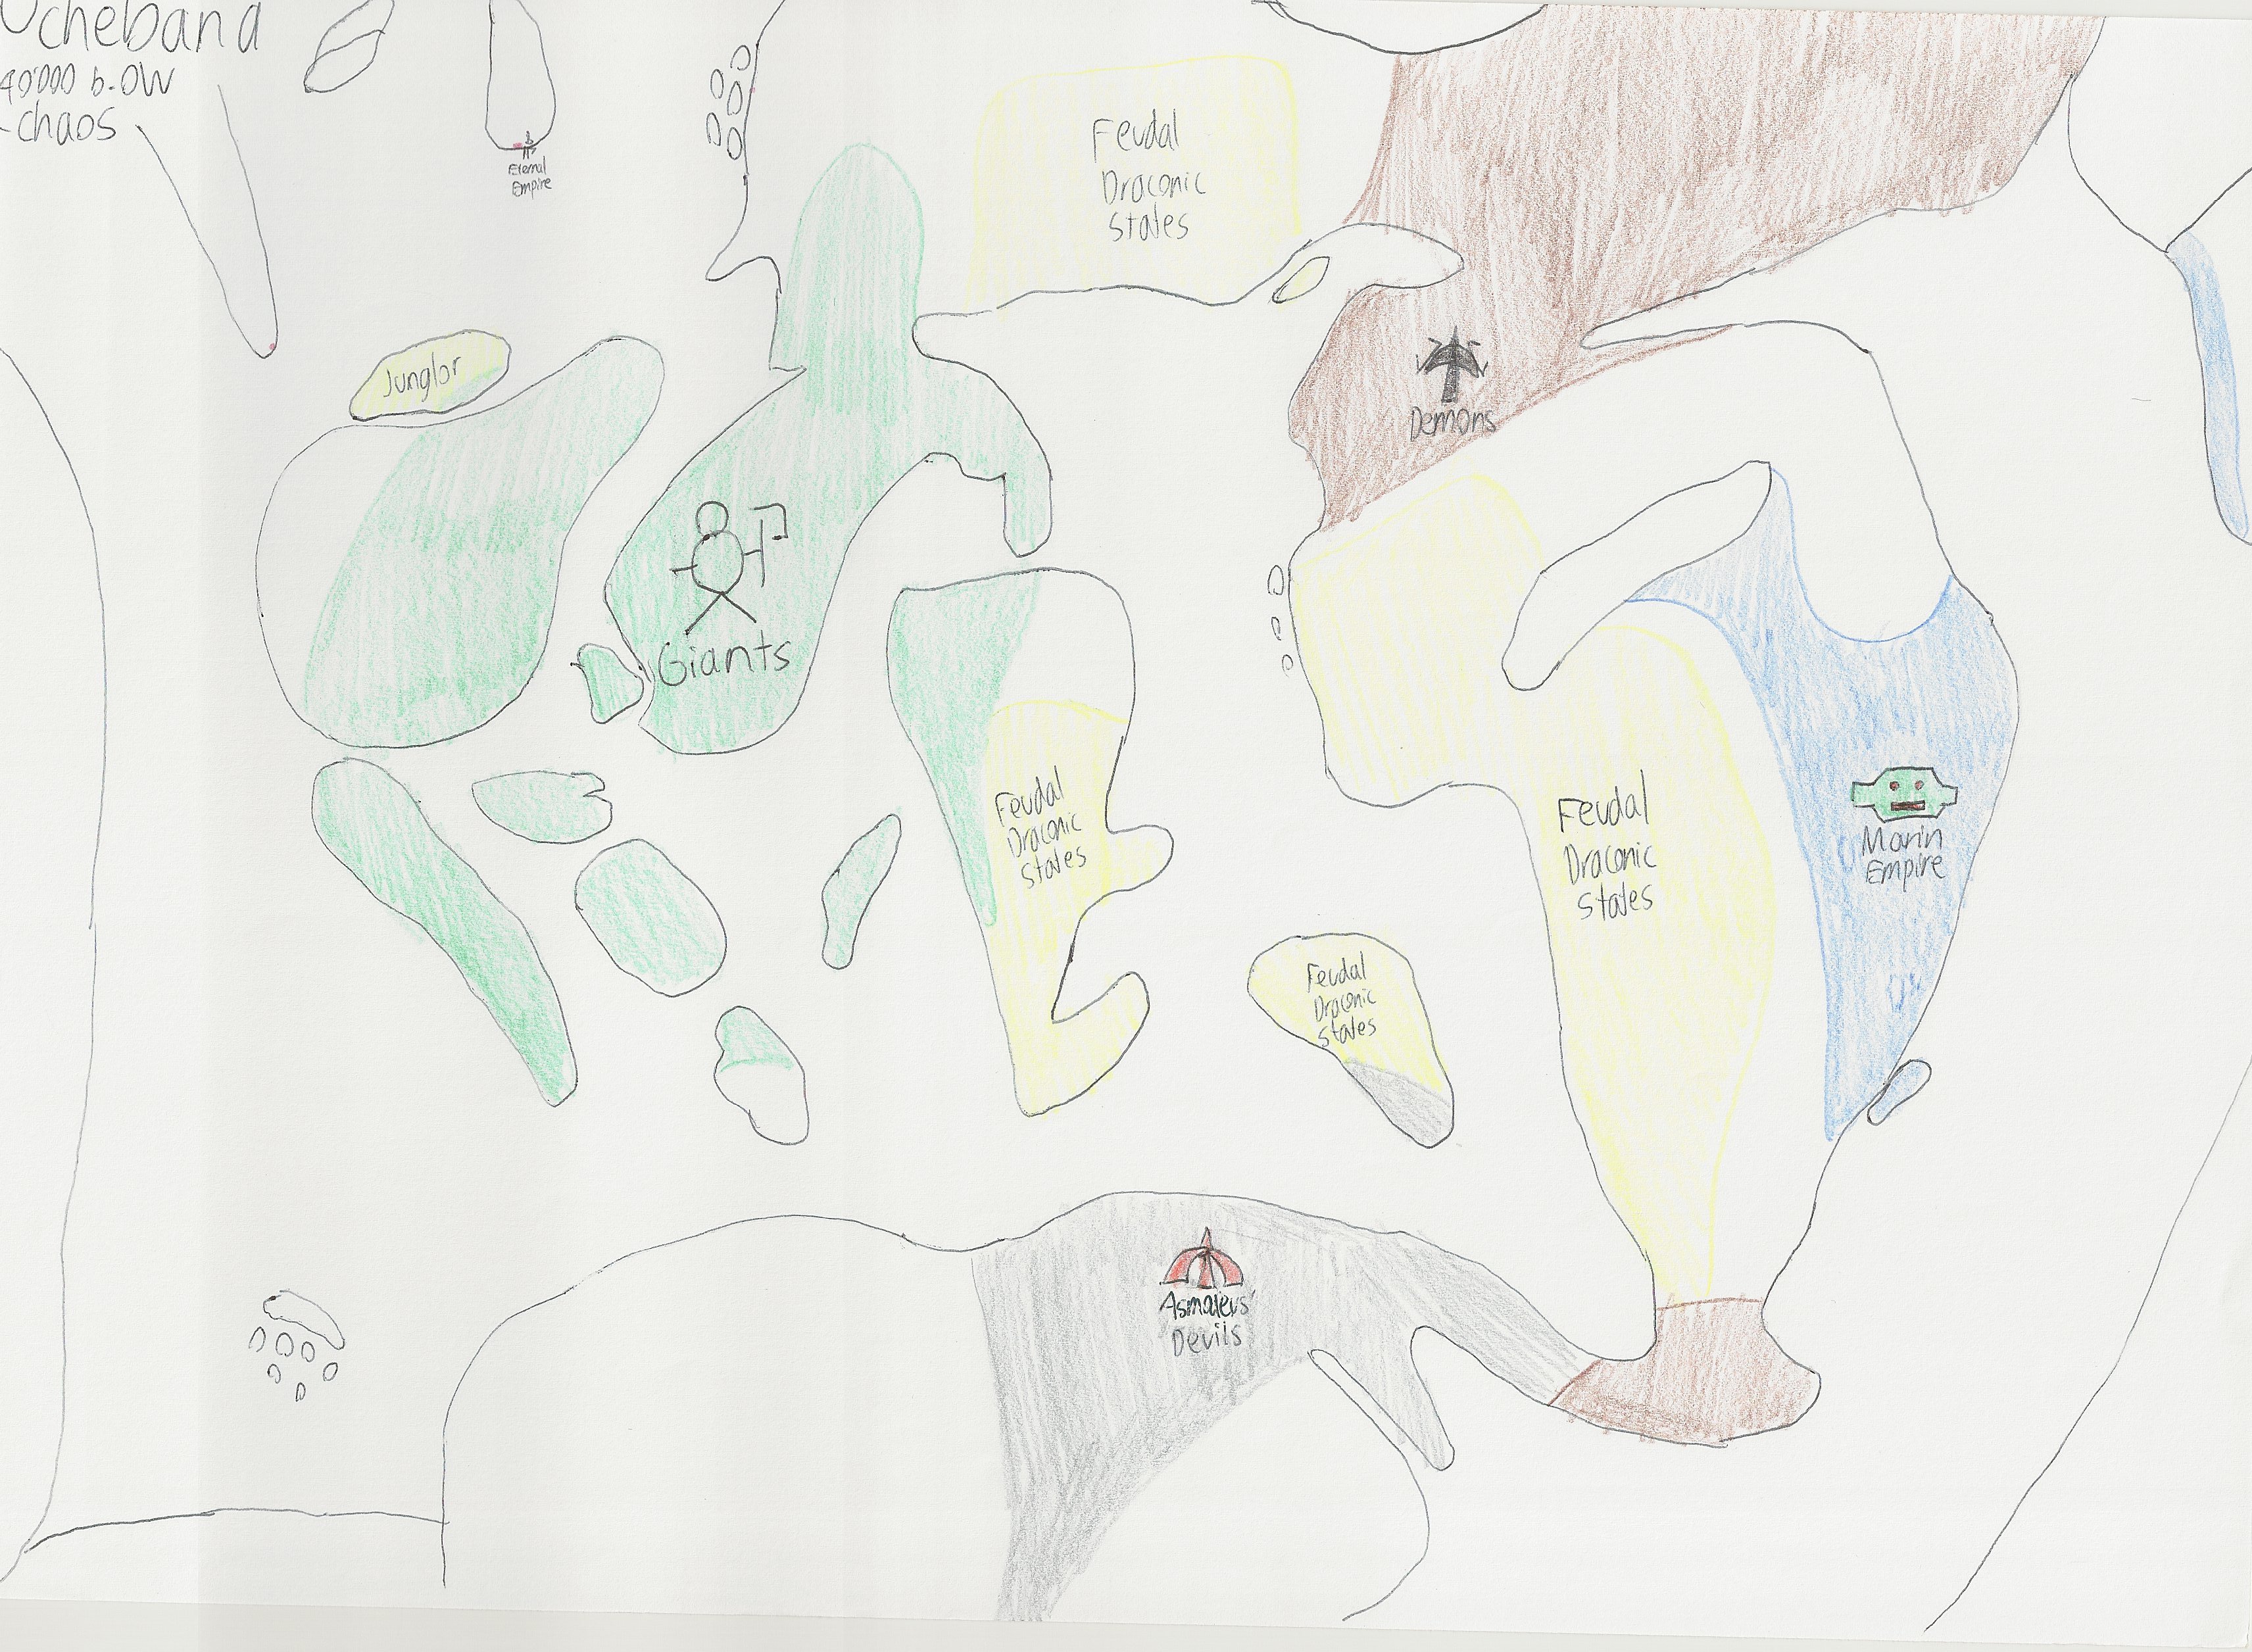 Ochebana
40'000 b.OW
-chaos
Eternal
Empire
Feudal
Draconic
States
Junglor
Demons
Giants
Feudal
Draconic
States
Feudal
Draconic
States
Marin
Empire
Feudal
Draconic
States
Asmodeus'
Devils